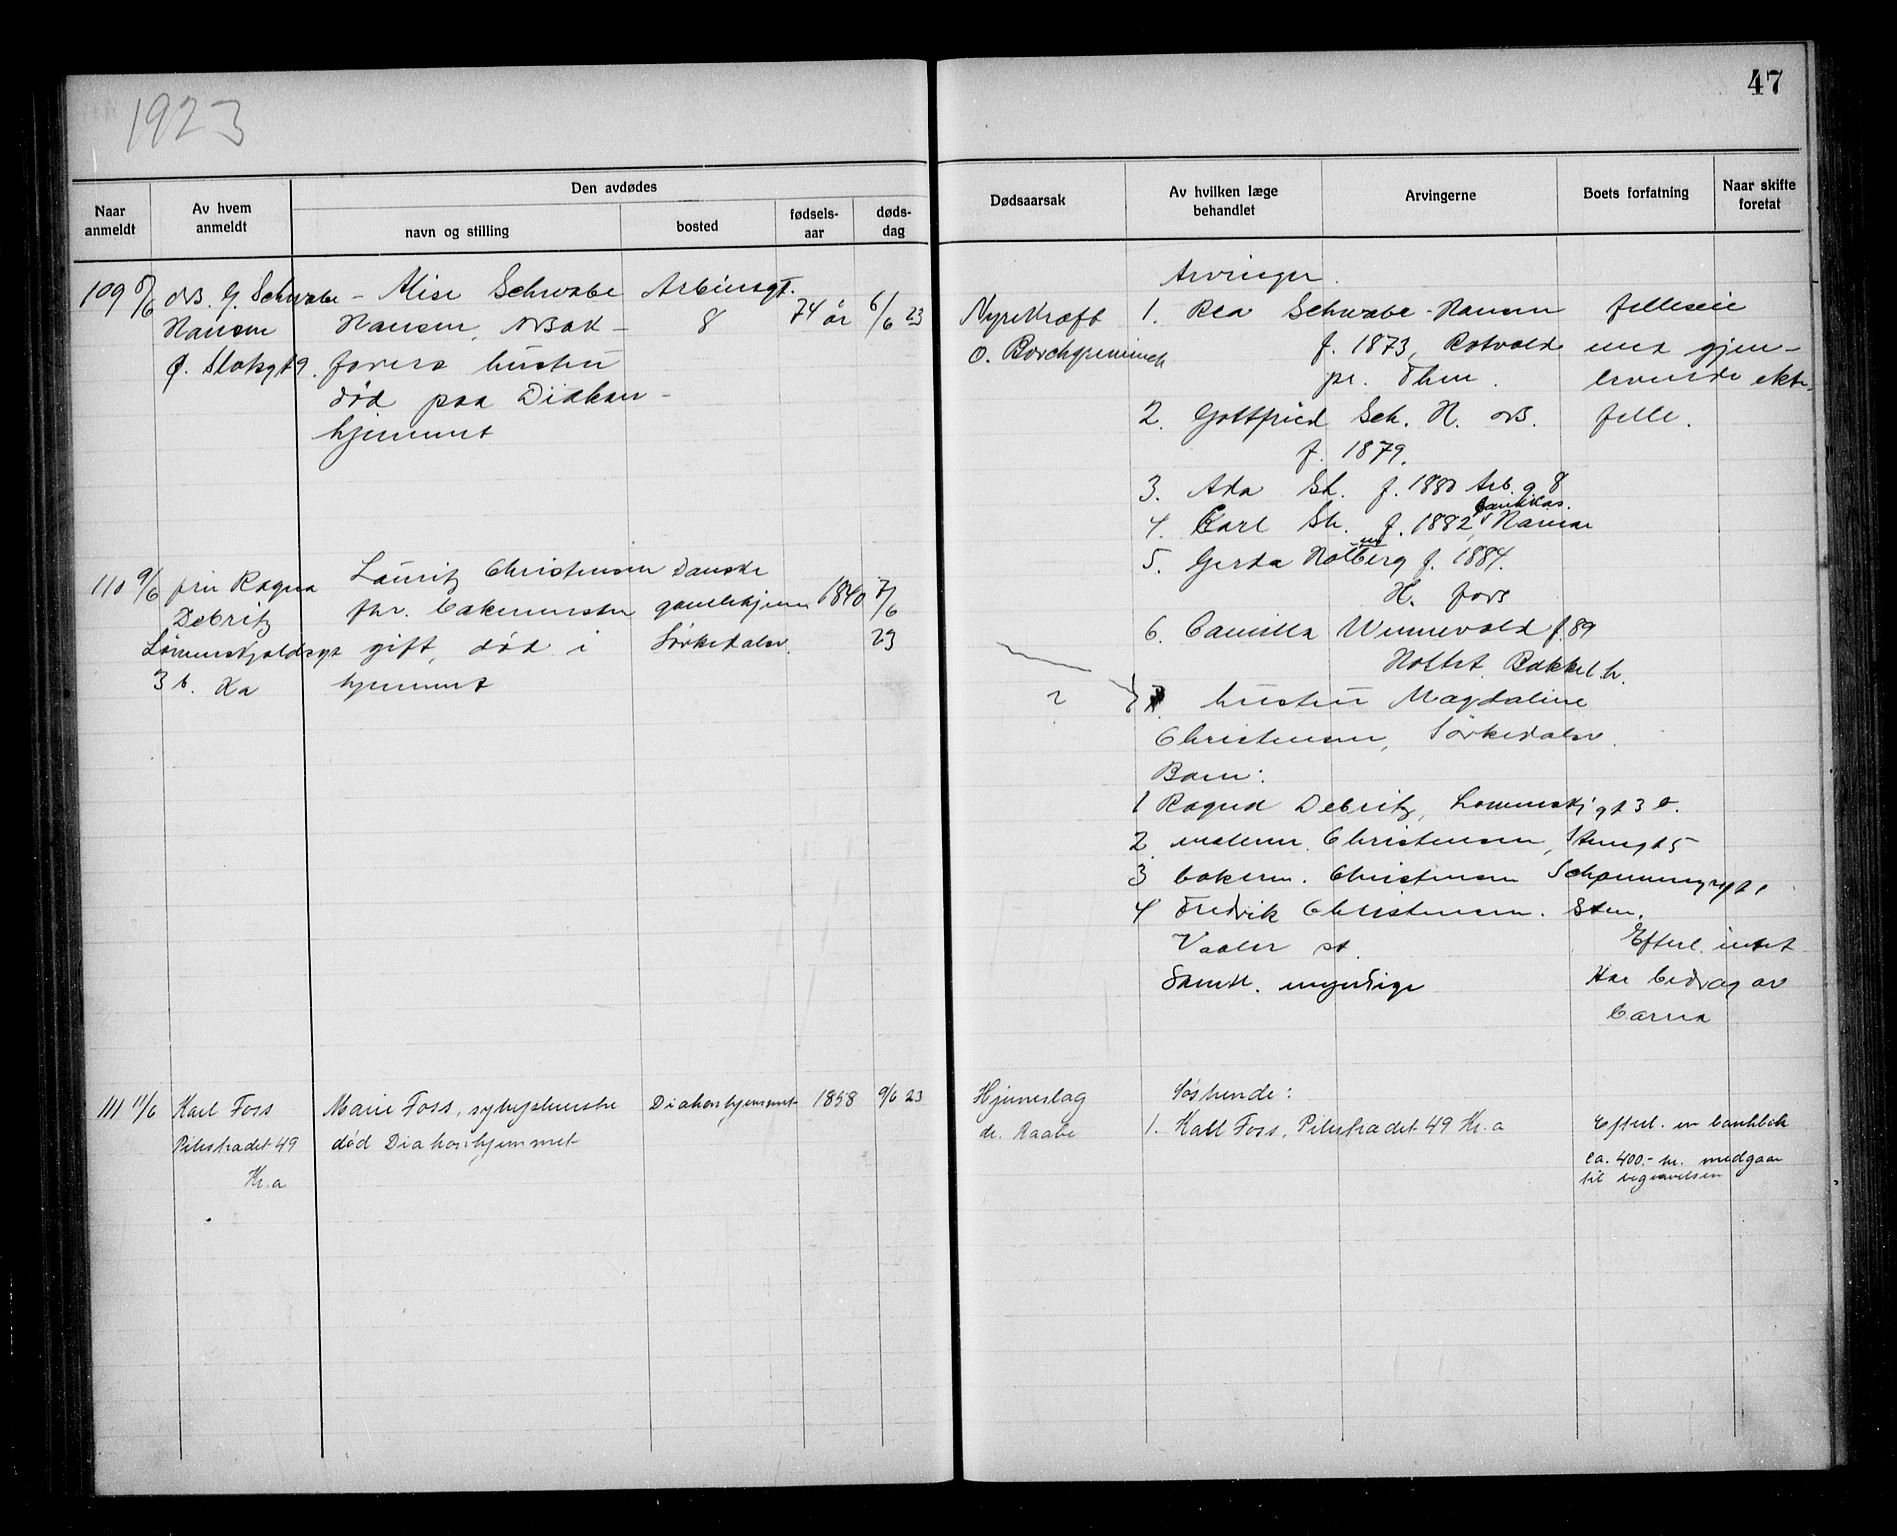 1923
47
Naar anmeldt
Av hvem anmeldt
Den avdødes
navn og stilling
bosted
fødsels-aar
døds-dag
Dødsaarsak
Av hvilken læge behandlet
Arvingerne
Boets forfatning
Naar skifte foretat
109
G. Schwabe -
Hansen
Ø. Slotsgt 9.
Alise Schwabe
Hansen,
førers hustru
død paa Diakon-
hjemmet
Arbinsgt.
8
74 år
6/6 23
Nyrekræft
o. Borchgrevinck
Arvinger.
1. Rea Schwabe-Hansen
f. 1873, Rotvold
pr. Thm.
2. Gottfried Sch. H. ors.
f. 1879.
3. Ada Sch. f. 1880 Arb. g 8
4. Carl Sch. f. 1882, Hamar
5. Gerda Holberg f. 1884.
H. fors
6. Camilla Winnevold f. 89
Holtet Bækkel. h.
felleseie
med gjen-
levende ekte-
felle.
110 9/6 fru Ragna
Debritz
Løvenskjoldsgt
3 b. Ka
Lauritz Christensen
fhv. bakermester
gift, død i
hjemmet
Danske
gamlehjem
Sørkedalsv.
1840
7/6
23
hustru Magdaline
Christensen, Sørkedalsv.
Barn:
1 Ragna Debritz, Løvenskj gt 3 b.
2. malerm. Christensen, Stensgt 5
3 bakerm. Christensen Schønningsgt 1
4 Fredrik Christensen. Sten.
Vaaler st.
Samtl. myndige
Efterl. intet
Har bidrag av
barna
111 11/6 Karl Foss
Pilestrædet 49
Kr.a
Marie Foss, sykepleierske
død Diakonhjemmet
Diakonhjemmet
1858
9/6 23
Hjerneslag
dr. Raabe
Søskende:
1. Karl Foss, Pilestrædet 49 Kr.a
Efterl. en bankbok
ca. 400.- kr. medgaar
til begravelsen